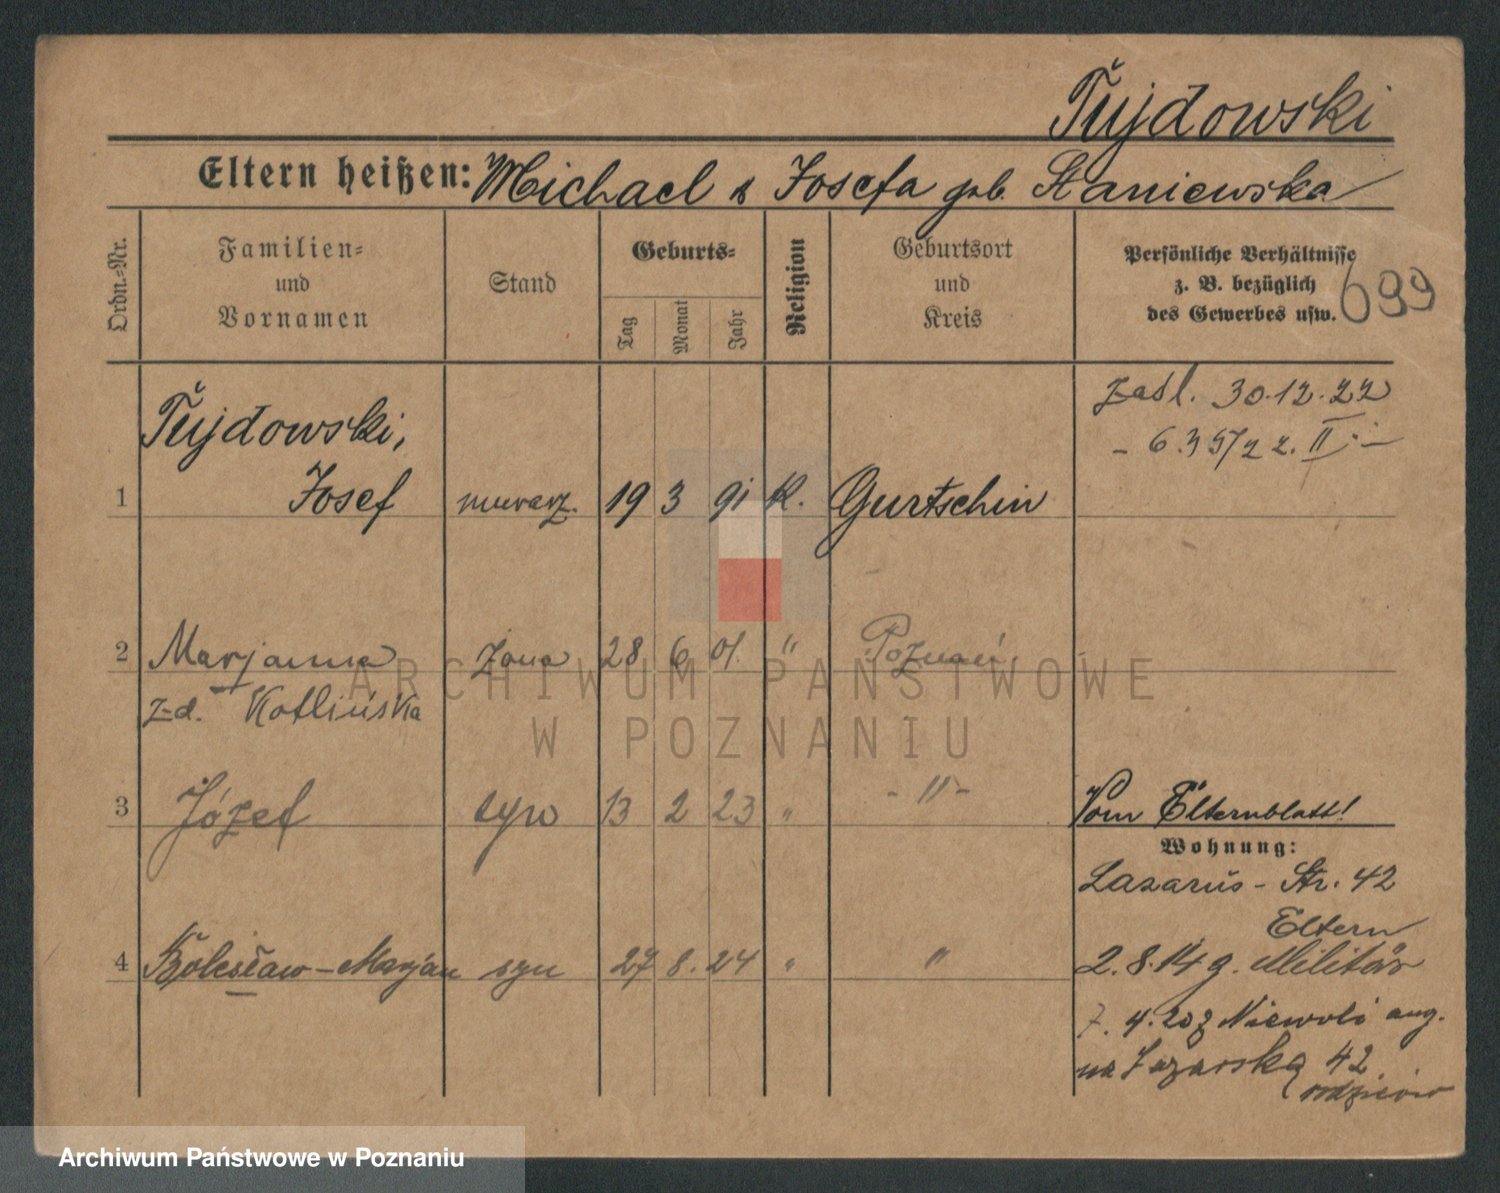 Tujdowski
Eltern heißen: Michael & Josefa geb. Staniewska
Ordn.-Nr.
Familien- und Vornamen
Stand
Geburts-
Tag
Monat
Jahr
Religion
Geburtsort und Kreis
Persönliche Verhältnisse
z. B. bezüglich
des Gewerbes usw.
699
zasl. 30.12.22
Tujdowski,
1 Josef murarz. 19 3 91 K. Gurtschin
2 Marjanna żona 28 6 01. " Poznań
z d. Kotlińska
3 Józef syn 13 2 23 " - " -
Vom Elternblatt!
Wohnung:
Lazarus - Str. 42
Eltern
4 Bolesław-Marjan syn 27 8. 24 " "
2.8.14 g. Militär
7. 4. 20 z Niewoli ang.
na Łazarską 42
rodziców
ARCHIWUM PAŃSTWOWE
W POZNANIU
Archiwum Państwowe w Poznaniu